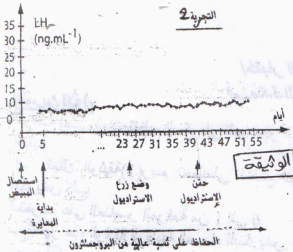 التجربة 2
LH
(ng.mL⁻¹)
35
30
25
20
15
10
0
أيام
0 5 10 15 ... 23 27 31 35 39 43 47 51 55
الوثيقة
استئصال المبيض
بداية المعايرة
وضع زرع الاستراديول
حقن الإستراديول
الحفاظ على نسبة عالية من البروجسترون